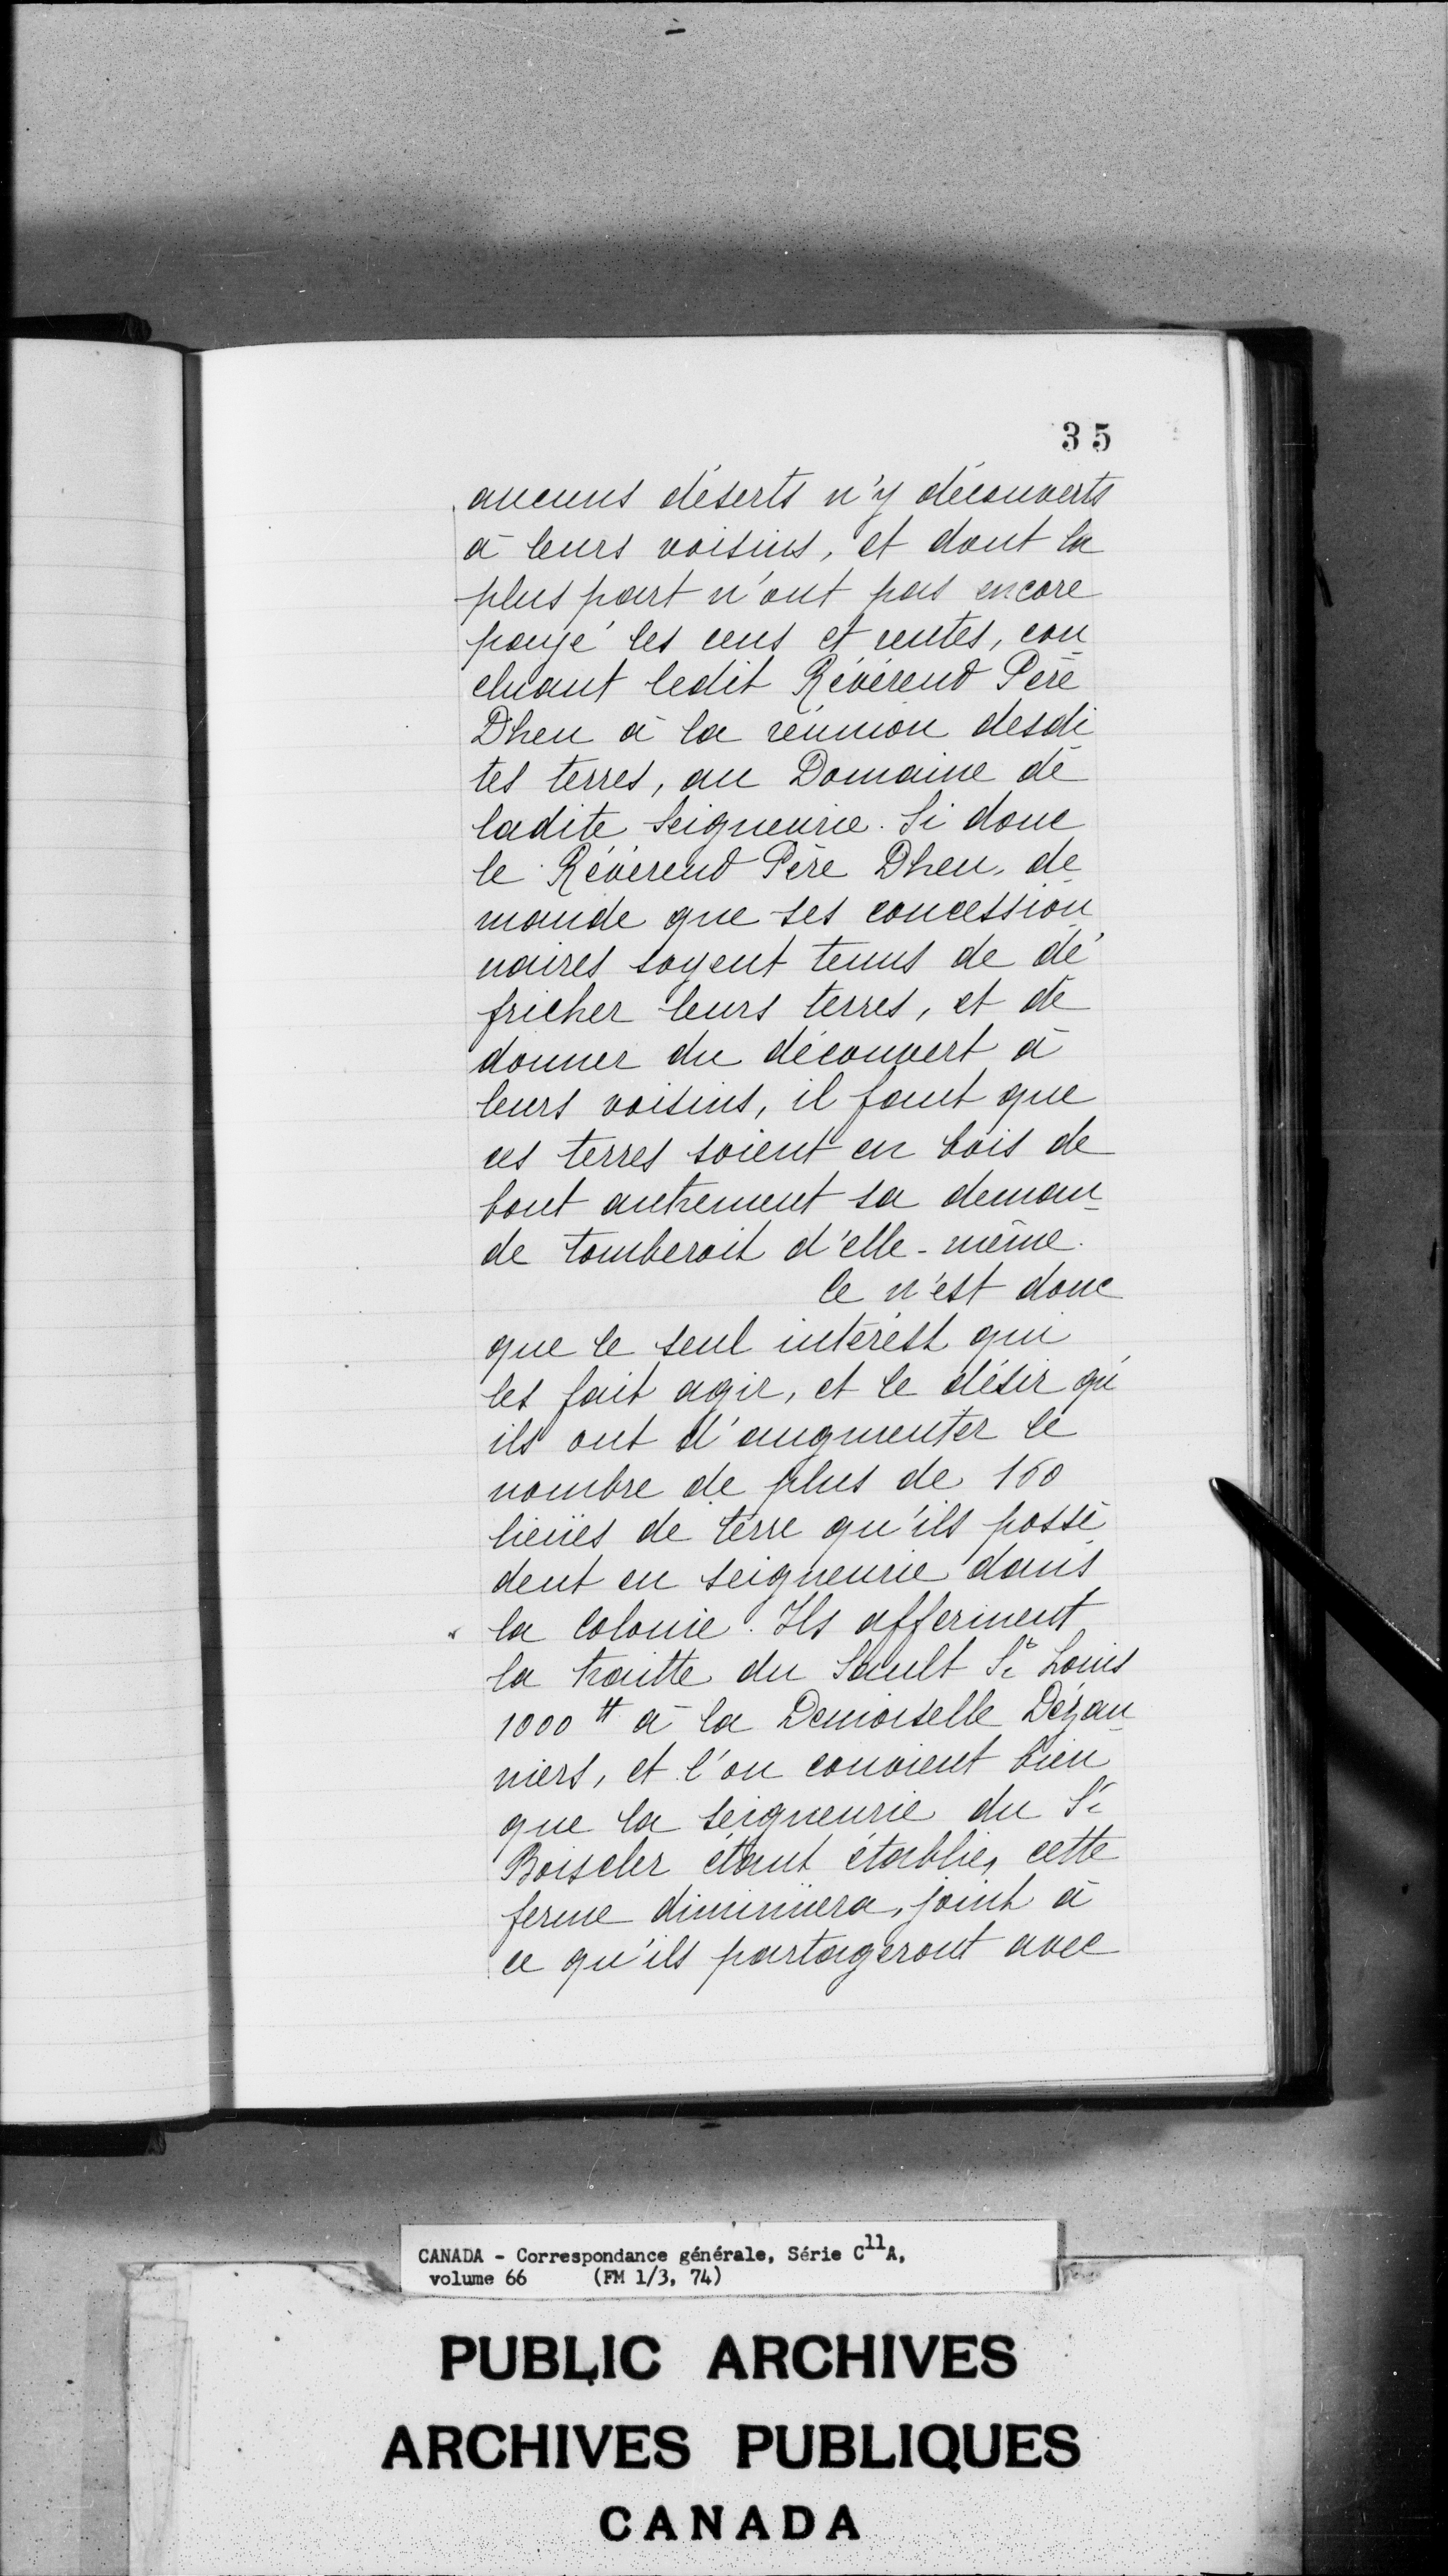 35
aucuns déserts n'y découverts
à leurs voisins, et dont la
plus part n'ont pas encore
payé les cens et rentes, con
cluant ledit Révérend Père
Dheu à la réunion desdi
tes terres, au Domaine de
ladite Seigneurie. Si donc
le Révérend Père Dheu de
mande que ses concession
naires soyent tenus de dé
fricher leurs terres, et de
donner du découvert à
leurs voisins, il faut que
ces terres soient en bois de
bout autrement sa deman
de tomberoit d'elle-même.
Ce n'est donc
que le seul intérest qui
les fait agir, et le désir qu'
ils ont d'augmenter le
nombre de plus de 160
lieües de terre qu'ils possè
dent en seigneurie dans
la Colonie. Ils afferment
la traitte du Sault St Louis
1000 ₶ à la Demoiselle Dézau
niers, et l'on convient bien
que la seigneurie du Sr
Boiscler étant établie, cette
ferme diminüera, joint à
ce qu'ils partageront avec
CANADA - Correspondance générale, Série C11A,
volume 66 (FM 1/3, 74)
PUBLIC ARCHIVES
ARCHIVES PUBLIQUES
CANADA